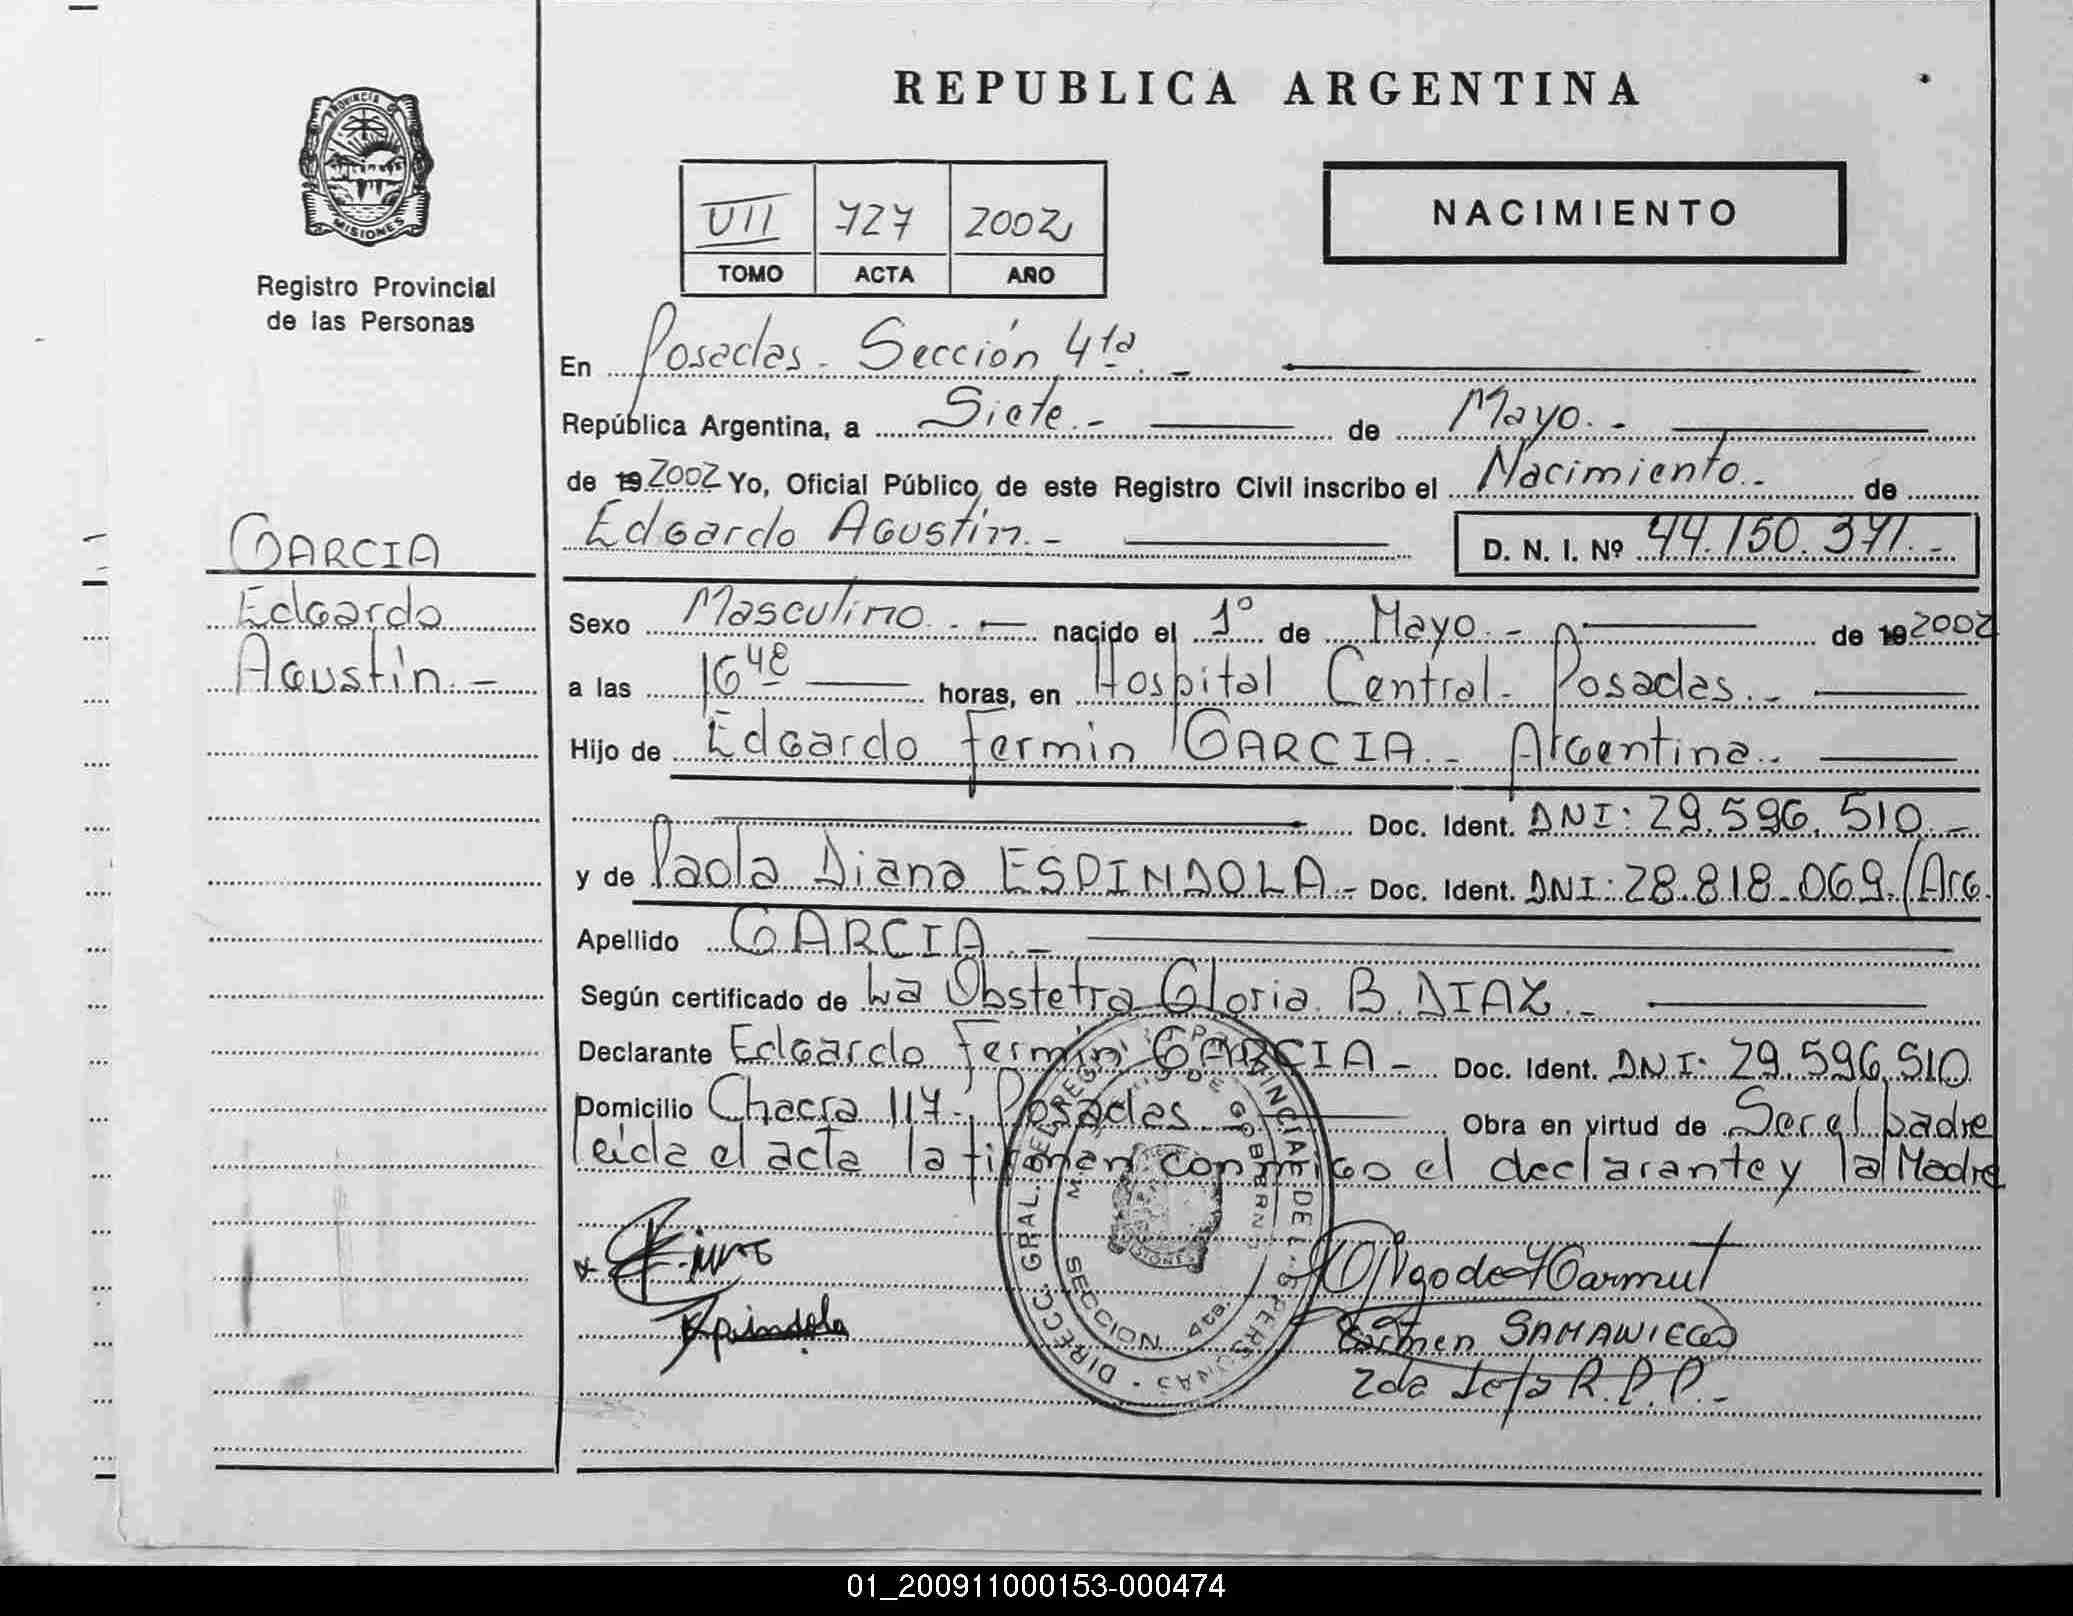 REPUBLICA ARGENTINA
PROVINCIA DE
MISIONES
Registro Provincial
de las Personas
VII 727 2002
TOMO ACTA AÑO
NACIMIENTO
En Posadas - Sección 4ta. -
República Argentina, a Siete. - de Mayo. -
de 19 2002 Yo, Oficial Público de este Registro Civil inscribo el Nacimiento. - de
Edgardo Agustín. - D. N. I. Nº 44.150.371. -
GARCIA
Edgardo
Agustín. -
Sexo Masculino. - nacido el 1º de Mayo. - de 19 2002
a las 16 48 horas, en Hospital Central - Posadas. -
Hijo de Edgardo Fermin GARCIA. - Argentina. -
Doc. Ident. DNI: 29.596.510. -
y de Paola Diana ESPINDOLA. - Doc. Ident. DNI: 28.818.069. / Arg.
Apellido GARCIA. -
Según certificado de La Obstetra Gloria B. DIAZ. -
Declarante Edgardo Fermin GARCIA - Doc. Ident. DNI: 29.596.510
Domicilio Chacra 117 - Posadas - Obra en virtud de Ser el padre
leida el acta la firman conmigo el declarante y la Madre
Espindola
Carmen SAMANIEGO
2da Jefa R.P.P. -
DIRECC. GRAL. DEL REG. PROVINCIAL DE LAS PERSONAS
M. DE GOBIERNO
SECCION 4ta.
01_200911000153-000474